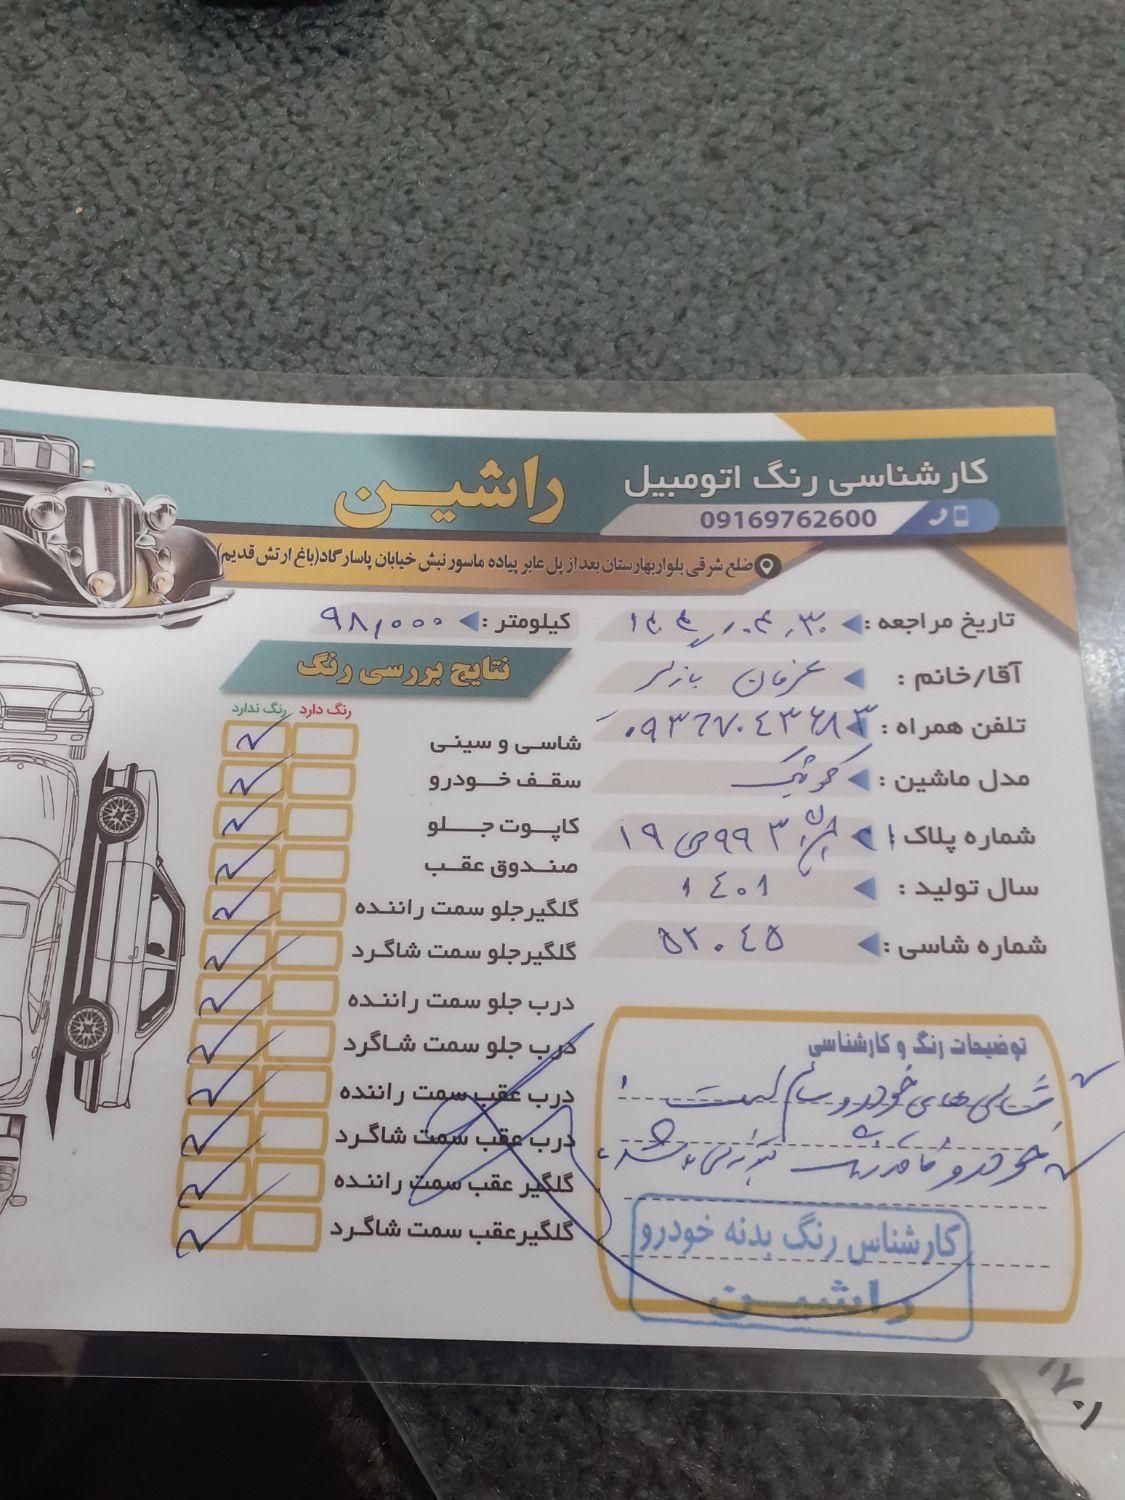 کارشناسی رنگ اتومبیل راشین
09169762600
ضلع شرقی بلوار بهارستان بعد از پل عابر پیاده ماسور نبش خیابان پاسارگاد(باغ ارتش قدیم)
تاریخ مراجعه :
کیلومتر : ۹۸,۰۰۰
آقا/خانم : عرفان
تلفن همراه :
مدل ماشین : کوئیک
شماره پلاک :
سال تولید : ۱۴۰۱
شماره شاسی : ۵۲۰۴۵
نتایج بررسی رنگ
رنگ دارد رنگ ندارد
شاسی و سینی
سقف خودرو
کاپوت جلو
صندوق عقب
گلگیر جلو سمت راننده
گلگیر جلو سمت شاگرد
درب جلو سمت راننده
درب جلو سمت شاگرد
درب عقب سمت راننده
درب عقب سمت شاگرد
گلگیر عقب سمت راننده
گلگیر عقب سمت شاگرد
توضیحات رنگ و کارشناسی
شاسی های خودرو سالم است
خودرو فاقد رنگ می باشد
کارشناس رنگ بدنه خودرو
راشین